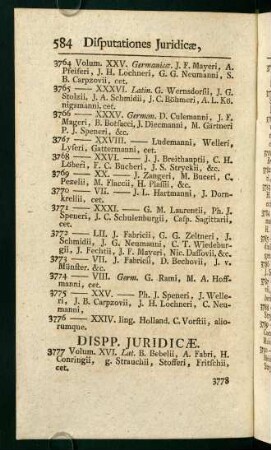 584 Disputationes Juridicæ,
3764 Volum. XXV. Germanicæ. J. F. Mayeri, A.
Pfeiferi, J. H. Lochneri, G. G. Neumanni, S.
B. Carpzovii, cet.
3765 —— XXXVI. Latin. G. Wernsdorfii, J. G.
Stolzii, J. A. Schmidii, J. C. Böhmeri, A. L. Kö-
nigsmanni, cet.
3766 —— XXXV. German. D. Culemanni, J. F.
Mageri, B. Botsacci, J. Diecmanni, M. Gärtneri
P. J. Speneri, &c.
3767 —— XXVIII. — Ludemanni, Welleri,
Lyseri, Gattermanni, cet.
3768 —— XXVI. — J. J. Breithauptii, C. H.
Löberi, F. C. Bucheri, J. S. Stryckii, &c.
3769 —— XX. — J. Zangeri, M. Buceri, C.
Pezelii, M. Flaccii, H. Plassii, &c.
3770 —— VII. — J. L. Hartmanni, J. Dorn-
krellii, cet.
3771 —— XXXI. — G. M. Laurentii, Ph. J.
Speneri, J. C. Schulenburgii, Casp. Sagittarii,
cet.
3772 —— LII. J. Fabricii, G. G. Zeltneri, J.
Schmidii, J. G. Neumanni, C. T. Wiedebur-
gii, J. Fechtii, J. F. Mayeri, Nic. Dassovii, &c.
3773 —— VII. J. Fabricii, D. Bechovii, J. v.
Münster. &c.
3774 —— VIII. Germ. G. Rami, M. A. Hoff-
manni, cet.
3775 —— XXV. — Ph. J. Speneri, J. Welle-
ri, J. B. Carpzovii, J. H. Lochneri, C. Neu-
manni,
3776 —— XXIV. ling. Holland. C. Vorstii, alio-
rumque.
DISPP. JURIDICÆ.
3777 Volum. XVI. Lat. B. Bebelii, A. Fabri, H.
Conringii, g. Strauchii, Stofferi, Fritschii,
cet.
3778